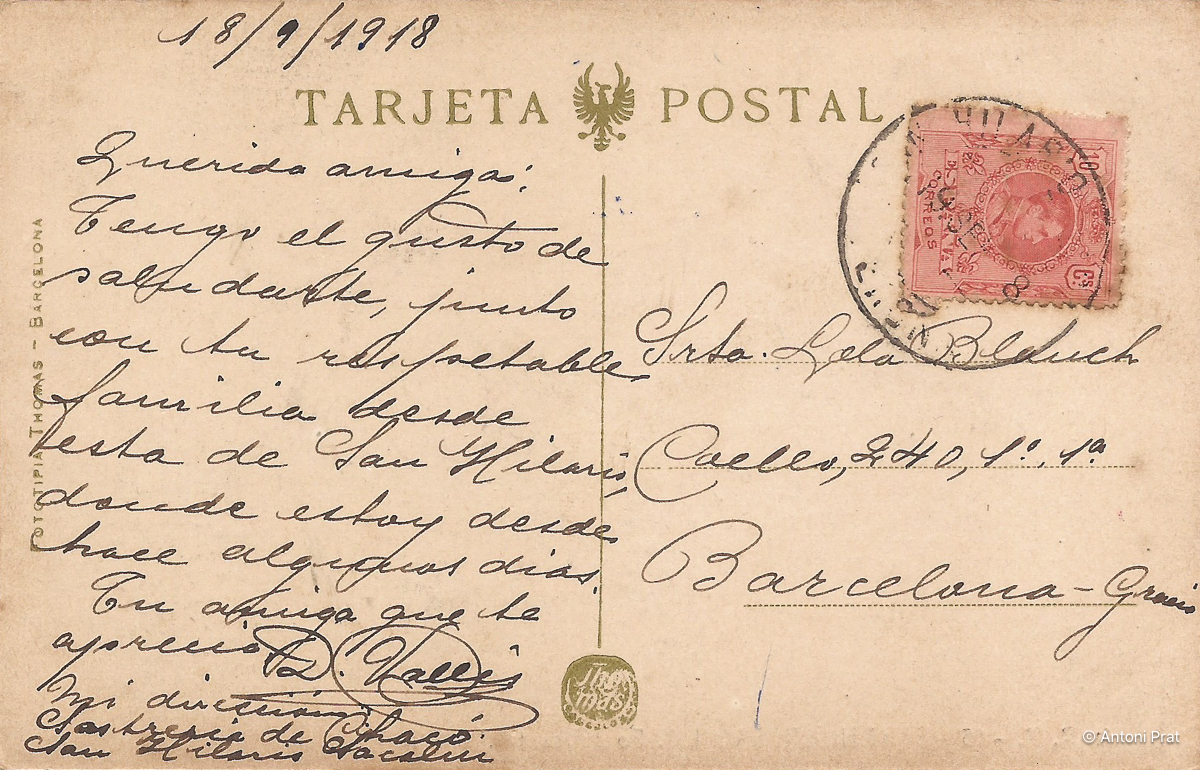 18/9/1918
TARJETA POSTAL
Querida amiga:
Tengo el gusto de
saludarte, junto
con tu respetable
familia desde
esta de San Hilario,
donde estoy desde
hace algunos dias.
Tu amiga que te
aprecia
Vallés
Mi dirección:
Sastreria de
San Hilario Sacalm
FOTOTIPIA THOMAS - BARCELONA
10
CORREOS
Cs
Srta. Lola Blanch
Coello, 240, 1º, 1ª
Barcelona - Gracia
© Antoni Prat